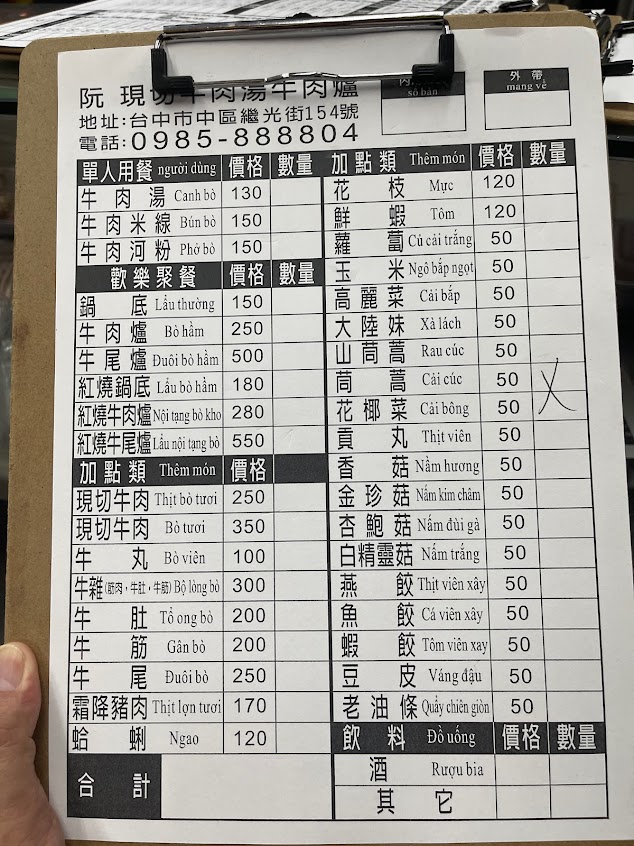 阮 現切牛肉湯牛肉爐
地址:台中市中區繼光街154號
電話:0985-888804
số bàn
外帶
mang về
單人用餐 người dùng 價格 數量
牛肉湯 Canh bò 130
牛肉米線 Bún bò 150
牛肉河粉 Phở bò 150
歡樂聚餐 價格 數量
鍋底 Lẩu thường 150
牛肉爐 Bò hầm 250
牛尾爐 Đuôi bò hầm 500
紅燒鍋底 Lẩu bò hầm 180
紅燒牛肉爐 Nội tạng bò kho 280
紅燒牛尾爐 Lẩu nội tạng bò 550
加點類 Thêm món 價格
現切牛肉 Thịt bò tươi 250
現切牛肉 Bò tươi 350
牛丸 Bò viên 100
牛雜(筋肉,牛肚,牛筋) Bộ lòng bò 300
牛肚 Tổ ong bò 200
牛筋 Gân bò 200
牛尾 Đuôi bò 250
霜降豬肉 Thịt lợn tươi 170
蛤蜊 Ngao 120
合計
加點類 Thêm món 價格 數量
花枝 Mực 120
鮮蝦 Tôm 120
蘿蔔 Củ cải trắng 50
玉米 Ngô bắp ngọt 50
高麗菜 Cải bắp 50
大陸妹 Xà lách 50
山茼蒿 Rau cúc 50
茼蒿 Cải cúc 50
花椰菜 Cải bông 50
貢丸 Thịt viên 50
香菇 Nầm hương 50
金珍菇 Nấm kim châm 50
杏鮑菇 Nấm đùi gà 50
白精靈菇 Nấm trắng 50
燕餃 Thịt viên xây 50
魚餃 Cá viên xây 50
蝦餃 Tôm viên xay 50
豆皮 Váng đậu 50
老油條 Quẩy chiên giòn 50
飲料 Đồ uống 價格 數量
酒 Rượu bia
其它